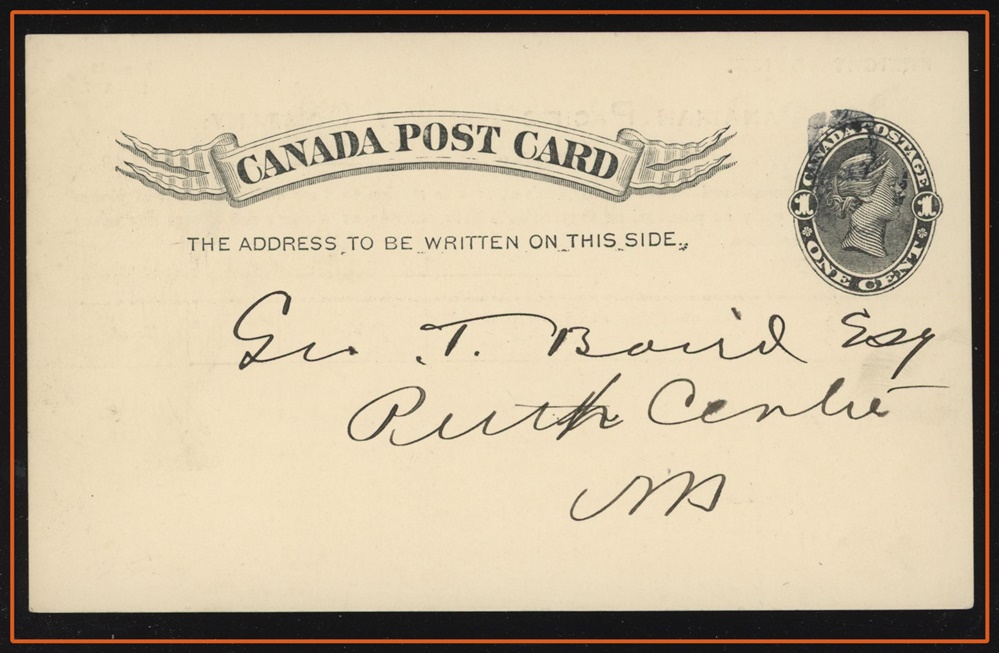 CANADA POST CARD
CANADA POSTAGE
1 1
ONE CENT
THE ADDRESS TO BE WRITTEN ON THIS SIDE.
Geo. T. Baird Esq
Perth Centre
NB